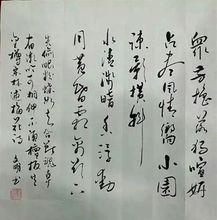 眾芳摇落獨喧妍
占盡風情嚮小園
疎影橫斜
水清淺暗香浮動
月黃昏霜禽欲下
先偷眼粉蝶如知合斷魂幸
有微吟可相狎不須檀板共
金樽宋林逋梅花詩